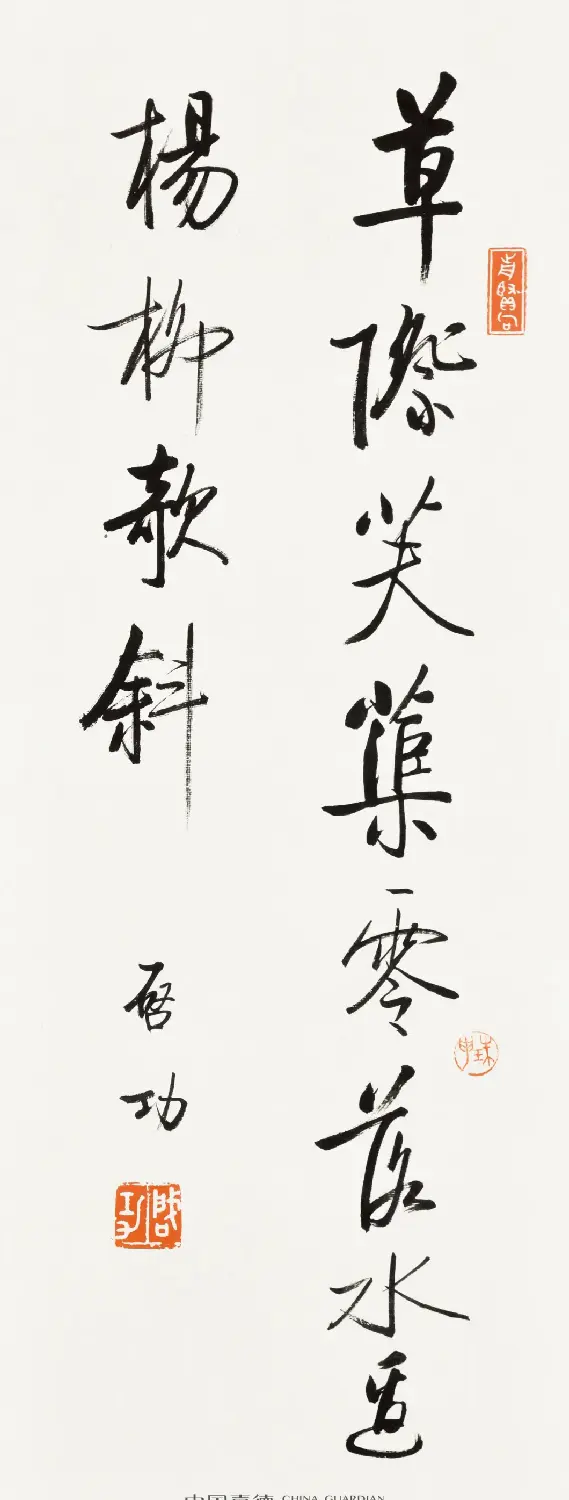 草際芙蕖零落水邊
楊柳欹斜
啓功
啓功
中国嘉德 CHINA GUARDIAN